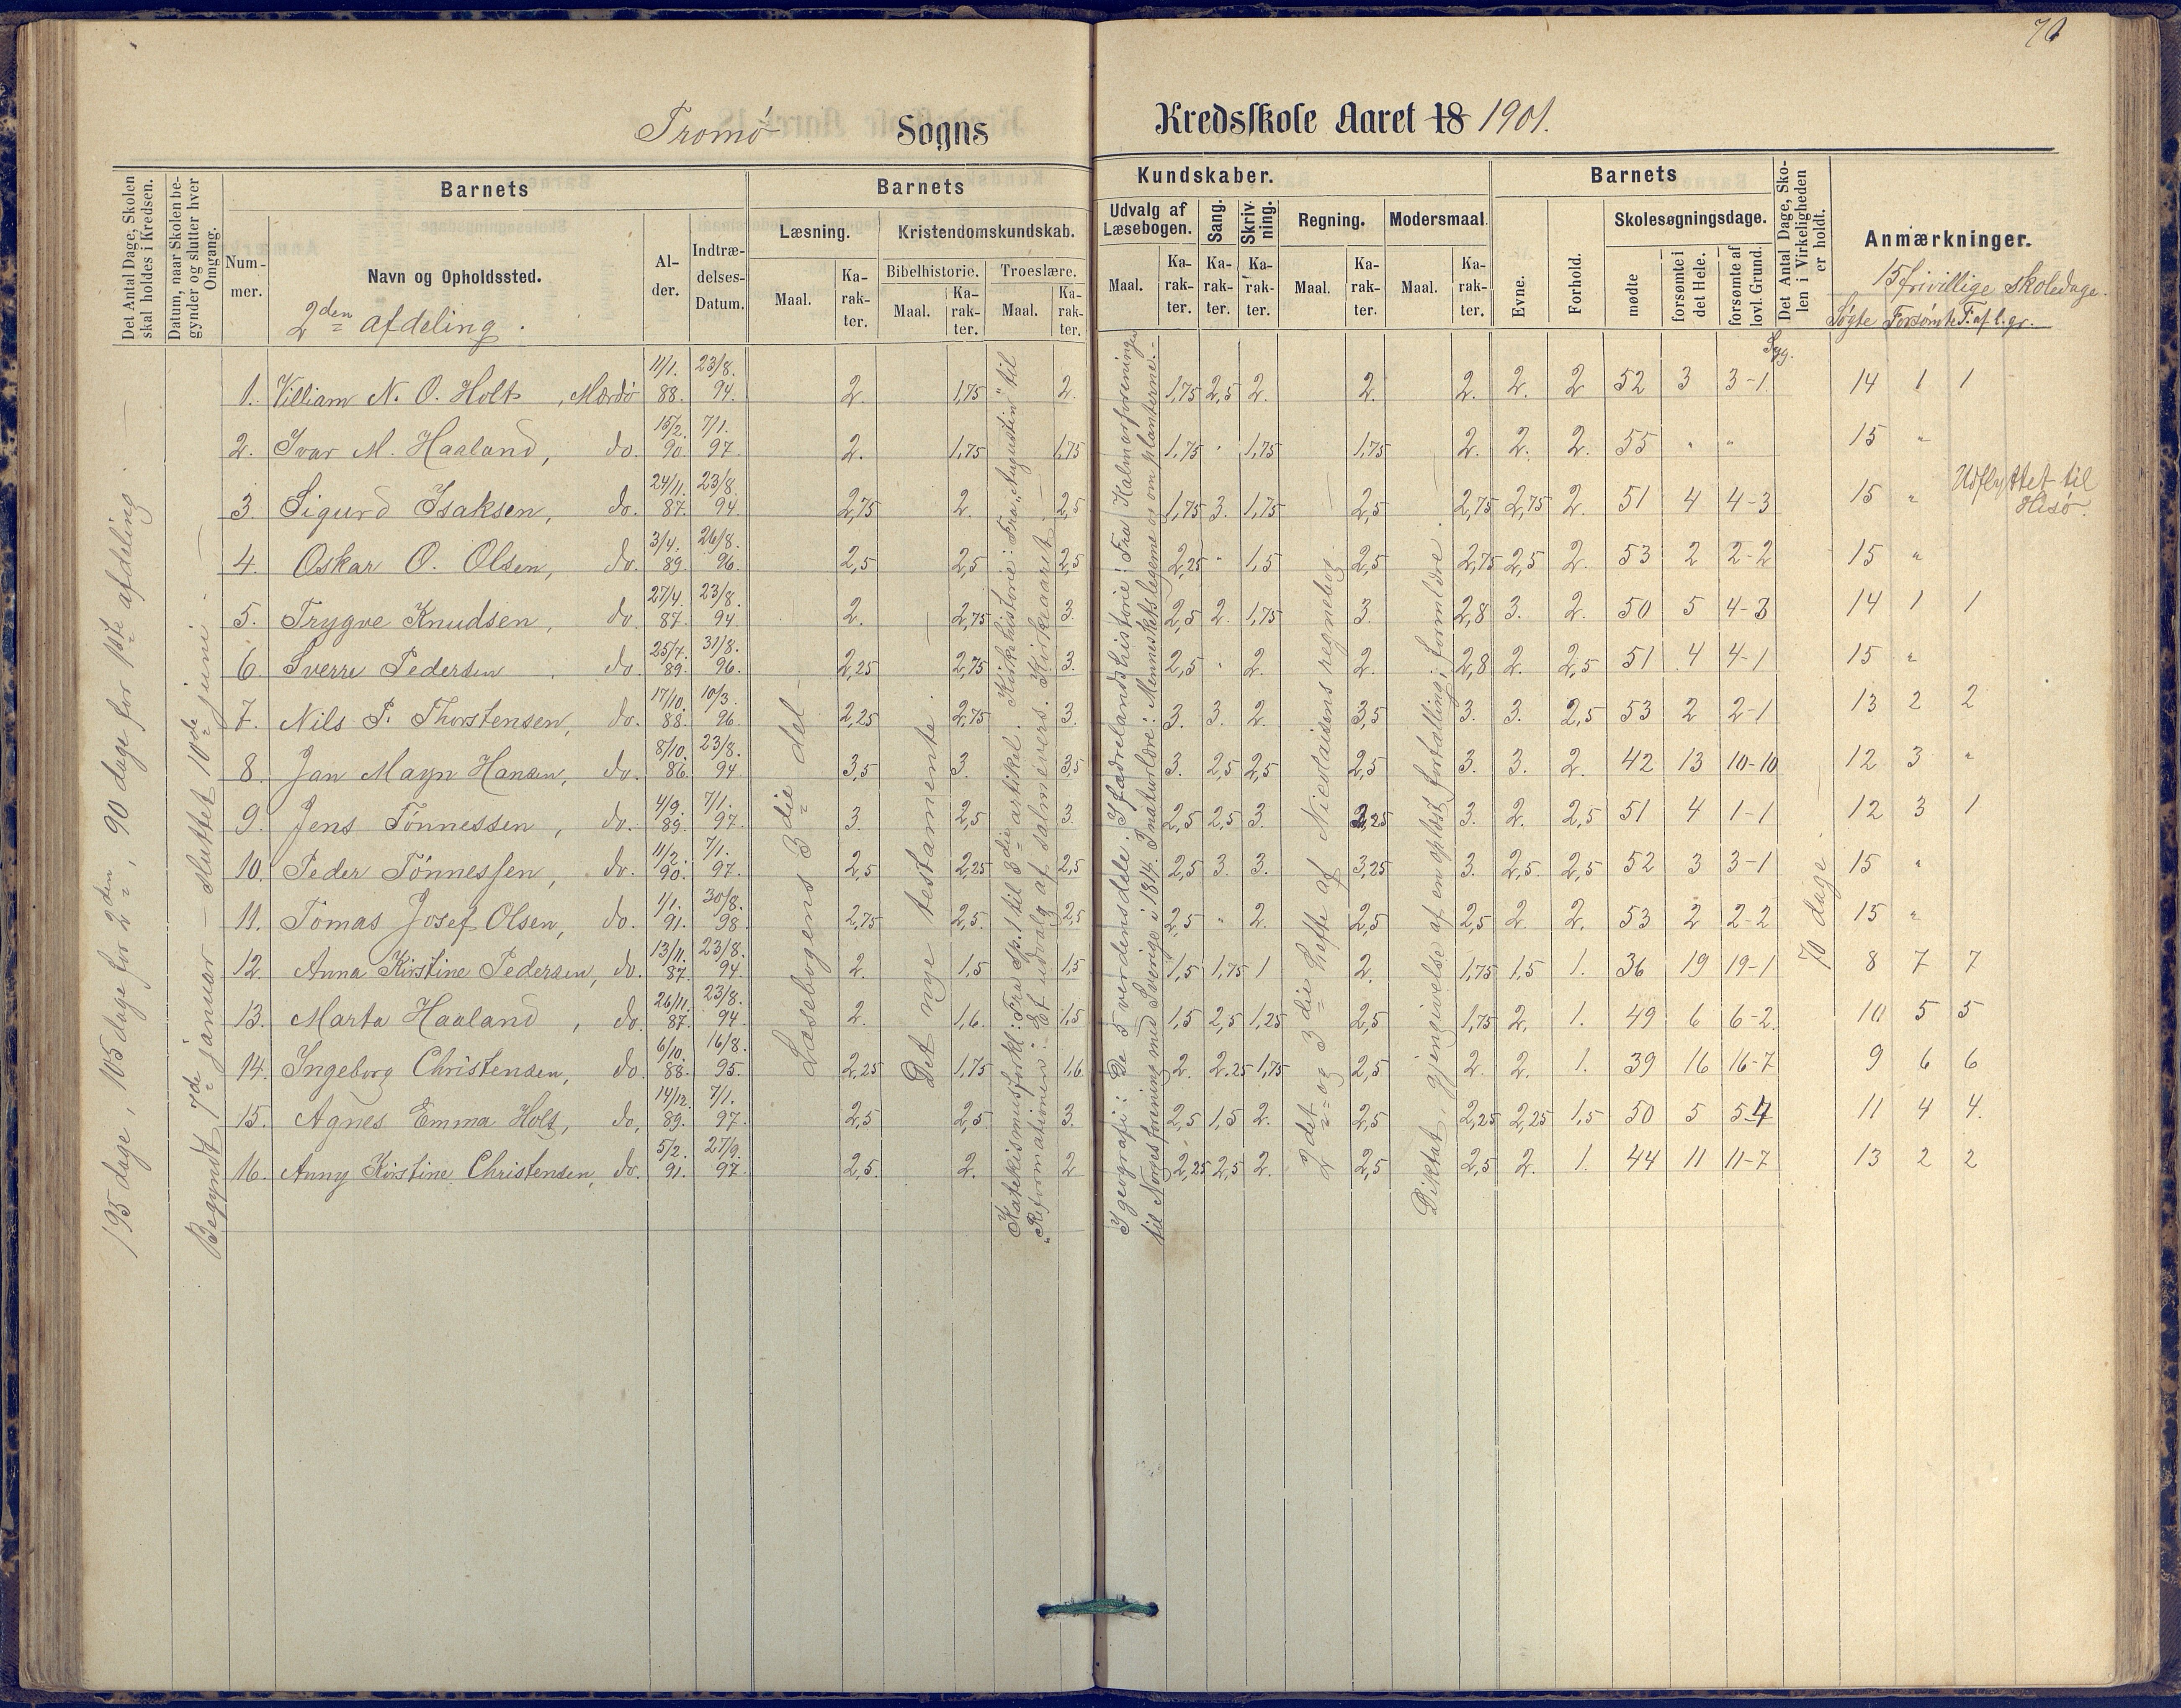 70
Tromø Sogns Kredsskole Aaret 18 1901.
Det Antal Dage, Skolen skal holdes i Kredsen.
Datum, naar Skolen begynder og slutter hver Omgang.
Barnets
Nummer.
Navn og Opholdssted.
2den afdeling.
Alder.
Indtrædelses-Datum.
Barnets Kundskaber.
Læsning.
Maal. Karakter.
Kristendomskundskab.
Bibelhistorie. Troeslære.
Maal. Karakter. Maal. Karakter.
Udvalg af Læsebogen.
Maal. Karakter.
Sang. Karakter.
Skrivning. Karakter.
Regning.
Maal. Karakter.
Modersmaal.
Maal. Karakter.
Barnets
Evne.
Forhold.
Skolesøgningsdage.
mødte
forsømte i det Hele.
forsømte af lovl. Grund.
Syg.
Det Antal Dage, Skolen i Virkeligheden er holdt.
Anmærkninger.
15 frivillige skoledage.
Søgte Forsømte F. af l. gr.
195 dage, 105 dage for 2den, 90 dage for 1ste afdeling.
Begyndt 7de januar – sluttet 10de juni.
Læsebogens 3die del
Det nye testamente.
Katekismusforkl.: Fra Sp. 1 til 3die artikel. Kirkehistorie: Fra "Augustin" til
"Reformationen". Et udvalg af salmevers. Kirkeaaret.
I geografi: De 5 verdensdele. I fædrelandshistorie: Fra Kalmarforeningen
til Norges forening med Sverige i 1814. I naturlære: Menneskelegeme og om planterne.
2det og 3die hefte af Nicolaisens regnebog.
Diktat, gjengivelse af en oplæst fortælling; formlære.
70 dage.
1. Villiam N. O. Holt, Mærdø 11/1. 88. 23/8. 94. 2. 1,75 2. 1,75 2,5 2. 2. 2. 2. 2 52 3 3-1. 14 1 1
2. Ivar M. Haaland, do. 15/2. 90. 7/1. 97. 2. 1,75 1,75 1,75 " 1,75 1,75 2. 2. 2. 55 " " 15 "
3. Sigurd Isaksen, do. 24/11. 87. 23/8. 94. 2,75 2. 2,5 1,75 3. 1,75 2,5 2,75 2,75 2. 51 4 4-3 15 " Udflyttet til Hisø.
4. Oskar O. Olsen, do. 3/4. 89. 26/8. 96. 2,5 2,5 2,5 2,25 " 1,5 2,5 2,75 2,5 2. 53 2 2-2 15 "
5. Trygve Knudsen, do. 27/4. 87. 23/8. 94. 2. 2,75 3. 2,5 2. 1,75 3. 2,8 3. 2. 50 5 4-3 14 1 1
6. Sverre Pedersen do. 25/7. 89. 31/8. 96. 2,25 2,75 3. 2,5 " 2. 2. 2,8 2. 2,5 51 4 4-1 15 "
7. Nils P. Thorstensen, do. 17/10. 88. 10/3. 96. 2,25 2,75 3. 3. 3. 2. 3,5 3. 3. 2,5 53 2 2-1 13 2 2
8. Jan Mayn Hansen, do. 8/10. 86. 23/8. 94. 3,5 3. 3,5 3. 2,5 2,5 2,5 3. 3. 2. 42 13 10-10 12 3 "
9. Jens Tønnessen, do. 4/9. 89. 7/1. 97. 3. 2,5 3. 2,5 2,5 3. 2,25 3. 2. 2,5 51 4 1-1 12 3 1
10. Peder Tønnessen, do. 11/2. 90. 7/1. 97. 2,5 2,25 2,5 2,5 3. 3. 3,25 3. 2,5. 2,5 52 3 3-1 15 "
11. Tomas Josef Olsen, do. 1/1. 91. 30/8. 98 2,75 2,5. 2,5 2,5 " 2. 2,5 2,5 2 2. 53 2 2-2 15 "
12. Anna Kirstine Pedersen, do. 13/11. 87. 23/8. 94. 2. 1,5 1,5 1,5 1,75 1 2. 1,75 1,5 1. 36 19 19-1 8 7 7
13. Marta Haaland, do. 26/11. 87. 23/8. 94. 2. 1,6. 1,5 1,5 2,5 1,25 2,5 1,75 2. 1. 49 6 6-2. 10 5 5
14. Ingeborg Christensen, do. 6/10. 88. 16/8. 95. 2,25 1,75 1,6. 2. 2,25 1,75 2,5 2. 2. 1. 39 16 16-7 9 6 6
15. Agnes Emma Holt, do. 14/12. 89. 7/1. 97. 2,5 2,5 3. 2,5 1,5 2. 2,5 2,25 2,25 1,5 50 5 5-4 11 4 4.
16. Anny Kirstine Christensen, do. 5/2. 91. 27/9. 97. 2,5. 2. 2 2,25 2,5 2. 2,5 2,5 2. 1. 44 11 11-7 13 2 2